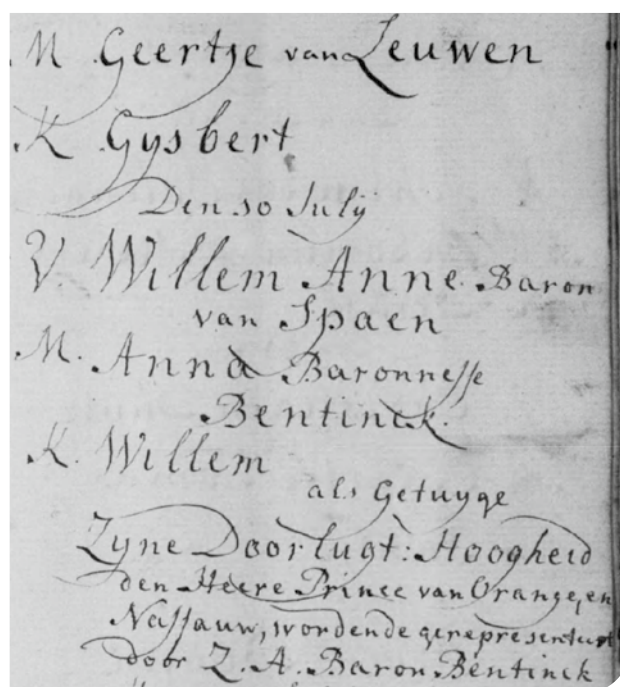 M Geertje van Leuwen
K Gysbert
Den 10 July
V Willem Anne. Baron
van Spaen
M. Anna Baronnesse
Bentinck.
K. Willem
als Getuyge
Zyne Doorlugt: Hoogheid
den Heere Prince van Orange, en
Nassauw, wordende gerepresenteert
door Z. A. Baron Bentinck